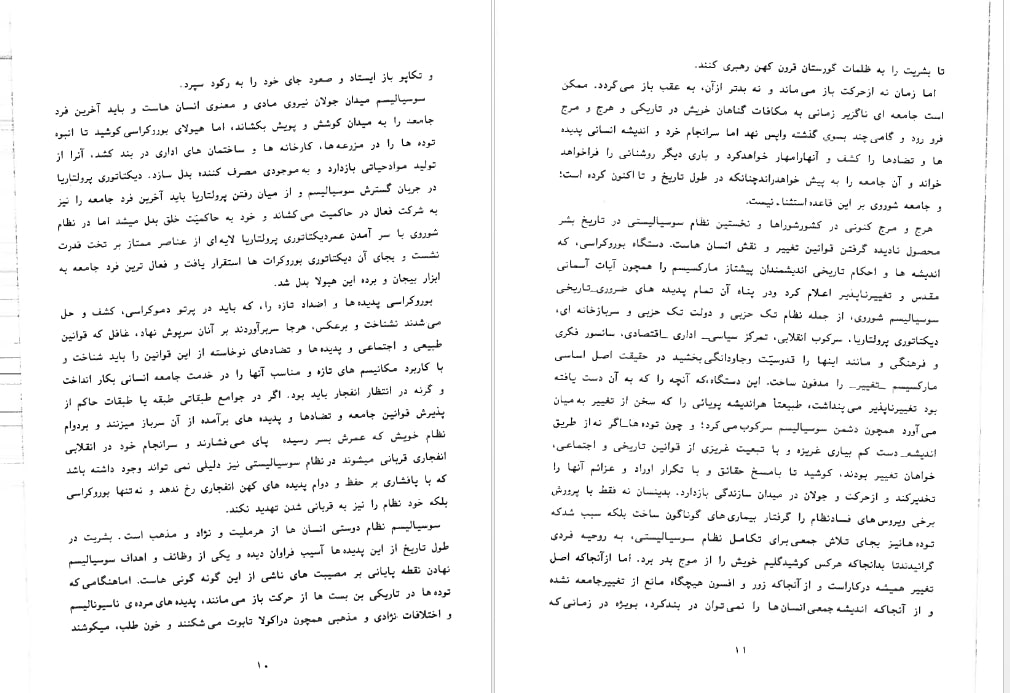 و تکاپو باز ایستاد و صعود جای خود را به رکود سپرد.
سوسیالیسم میدان جولان نیروی مادی و معنوی انسان هاست و باید آخرین فرد
جامعه را به میدان کوشش و پویش بکشاند، اما هیولای بوروکراسی کوشید تا انبوه
توده ها را در مزرعه‌ها، کارخانه ها و ساختمان های اداری در بند کشد، آنرا از
تولید موادحیاتی بازدارد و به موجودی مصرف کننده بدل سازد. دیکتاتوری پرولتاریا
در جریان گسترش سوسیالیسم و از میان رفتن پرولتاریا باید آخرین فرد جامعه را نیز
به شرکت فعال در حاکمیت می کشاند و خود به حاکمیّت خلق بدل میشد اما در نظام
شوروی با سر آمدن عمردیکتاتوری پرولتاریا لایه ای از عناصر ممتاز بر تخت قدرت
نشست و بجای آن دیکتاتوری بوروکرات ها استقرار یافت و فعال ترین فرد جامعه به
ابزار بیجان و برده این هیولا بدل شد.
بوروکراسی پدیده ها و اضداد تازه را، که باید در پرتو دموکراسی، کشف و حل
می شدند نشناخت و برعکس، هرجا سربرآوردند بر آنان سرپوش نهاد، غافل که قوانین
طبیعی و اجتماعی و پدیده ها و تضادهای نوخاسته از این قوانین را باید شناخت و
با کاربرد مکانیسم های تازه و مناسب آنها را در خدمت جامعه انسانی بکار انداخت
و گرنه در انتظار انفجار باید بود. اگر در جوامع طبقاتی طبقه یا طبقات حاکم از
پذیرش قوانین جامعه و تضادها و پدیده های برآمده از آن سرباز میزنند و بردوام
نظام خویش که عمرش بسر رسیده پای می فشارند و سرانجام خود در انقلابی
انفجاری قربانی میشوند درنظام سوسیالیستی نیز دلیلی نمی تواند وجود داشته باشد
که با پافشاری بر حفظ و دوام پدیده های کهن انفجاری رخ ندهد و نه تنها بوروکراسی
بلکه خود نظام را نیز به قربانی شدن تهدید نکند.
سوسیالیسم نظام دوستی انسان ها از هرملیت و نژاد و مذهب است. بشریت در
طول تاریخ از این پدیده ها آسیب فراوان دیده و یکی از وظائف و اهداف سوسیالیسم
نهادن نقطه پایانی بر مصیبت های ناشی از این گونه گونی هاست. اماهنگامی که
توده ها در تاریکی بن بست ها از حرکت باز می مانند، پدیده های مرده ی ناسیونالیسم
و اختلافات نژادی و مذهبی همچون دراکولا تابوت می شکنند و خون طلب، میکوشند
۱۰
تا بشریت را به ظلمات گورستان قرون کهن رهبری کنند.
اما زمان نه ازحرکت باز می ماند و نه بدتر ازآن، به عقب باز می گردد. ممکن
است جامعه ای ناگزیر زمانی به مکافات گناهان خویش در تاریکی و هرج و مرج
فرو رود و گامی چند بسوی گذشته واپس نهد اما سرانجام خرد و اندیشه انسانی پدیده
ها و تضادها را کشف و آنهارامهار خواهدکرد و باری دیگر روشنائی را فراخواهد
خواند و آن جامعه را به پیش خواهدراندچنانکه در طول تاریخ و تا اکنون کرده است؛
و جامعه شوروی بر این قاعده استثناء نیست.
هرج و مرج کنونی در کشورشوراها و نخستین نظام سوسیالیستی در تاریخ بشر
محصول نادیده گرفتن قوانین تغییر و نقش انسان هاست. دستگاه بوروکراسی، که
اندیشه ها و احکام تاریخی اندیشمندان پیشتاز مارکسیسم را همچون آیات آسمانی
مقدس و تغییرناپذیر اعلام کرد ودر پناه آن تمام پدیده های ضروری_تاریخی
سوسیالیسم شوروی، از جمله نظام تک حزبی و دولت تک حزبی و سربازخانه ای،
دیکتاتوری پرولتاریا، سرکوب انقلابی، تمرکز سیاسی_ اداری _اقتصادی، سانسور فکری
و فرهنگی و مانند اینها را قدوسیّت وجاودانگی بخشید در حقیقت اصل اساسی
مارکسیسم _تغییر_ را مدفون ساخت. این دستگاه،که آنچه را که به آن دست یافته
بود تغییرناپذیر می پنداشت، طبیعتاً هراندیشه پویائی را که سخن از تغییر به میان
می آورد همچون دشمن سوسیالیسم سرکوب می کرد؛ و چون توده ها_اگر نه از طریق
اندیشه_ دست کم بیاری غریزه و با تبعیت غریزی از قوانین تاریخی و اجتماعی،
خواهان تغییر بودند، کوشید تا بامسخ حقائق و با تکرار اوراد و عزائم آنها را
تخدیرکند و ازحرکت و جولان در میدان سازندگی بازدارد. بدینسان نه فقط با پرورش
برخی ویروس های فسادنظام را گرفتار بیماری های گوناگون ساخت بلکه سبب شدکه
توده هانیز بجای تلاش جمعی برای تکامل نظام سوسیالیستی، به روحیه فردی
گرائیدندتا بدانجاکه هرکس کوشیدگلیم خویش را از موج بدر برد. اما ازآنجاکه اصل
تغییر همیشه درکاراست و ازآنجاکه زور و افسون هیچگاه مانع از تغییرجامعه نشده
و از آنجاکه اندیشه جمعی انسان ها را نمی توان در بندکرد، بویژه در زمانی که
۱۱